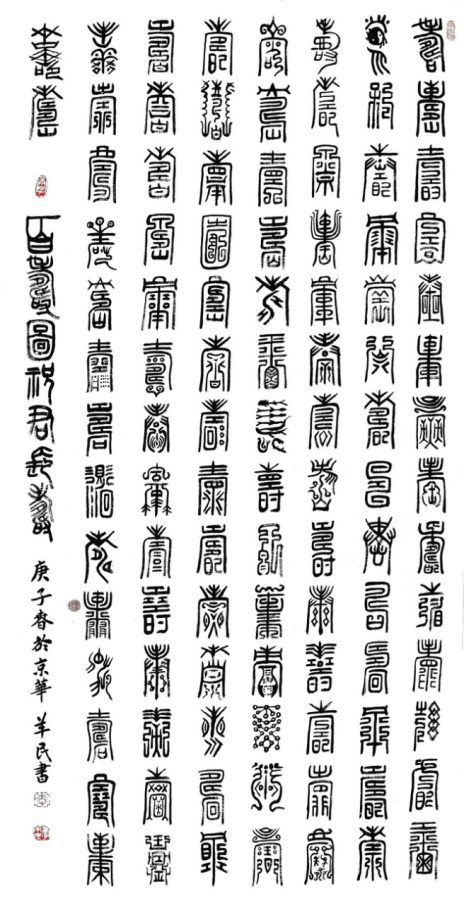 壽壽壽壽壽壽壽壽壽壽壽壽壽壽
壽壽壽壽壽壽壽壽壽壽壽壽壽壽
壽壽壽壽壽壽壽壽壽壽壽壽壽壽
壽壽壽壽壽壽壽壽壽壽壽壽壽壽
壽壽壽壽壽壽壽壽壽壽壽壽壽壽
壽壽壽壽壽壽壽壽壽壽壽壽壽壽
壽壽壽壽壽壽壽壽壽壽壽壽壽壽
壽壽
百壽圖祝君長壽
庚子春於京華 羊民書